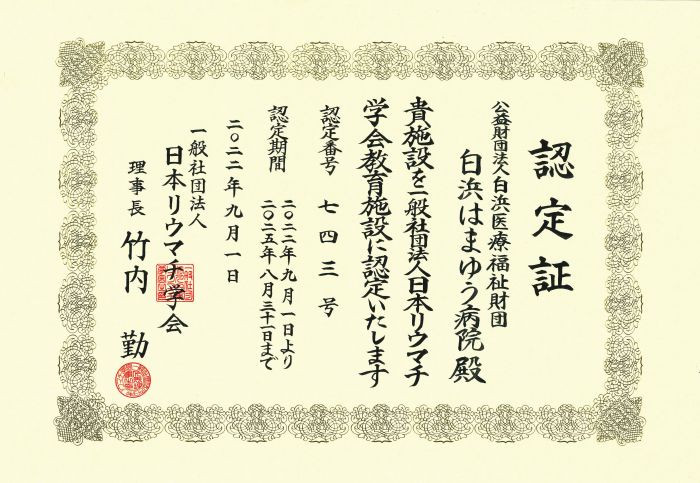 認定証
公益財団法人白浜医療福祉財団
白浜はまゆう病院 殿
貴施設を一般社団法人日本リウマチ
学会教育施設に認定いたします
認定番号 七四三号
認定期間 二〇二二年九月一日より
二〇二五年八月三十一日まで
二〇二二年九月一日
一般社団法人
日本リウマチ学会
理事長 竹内 勤